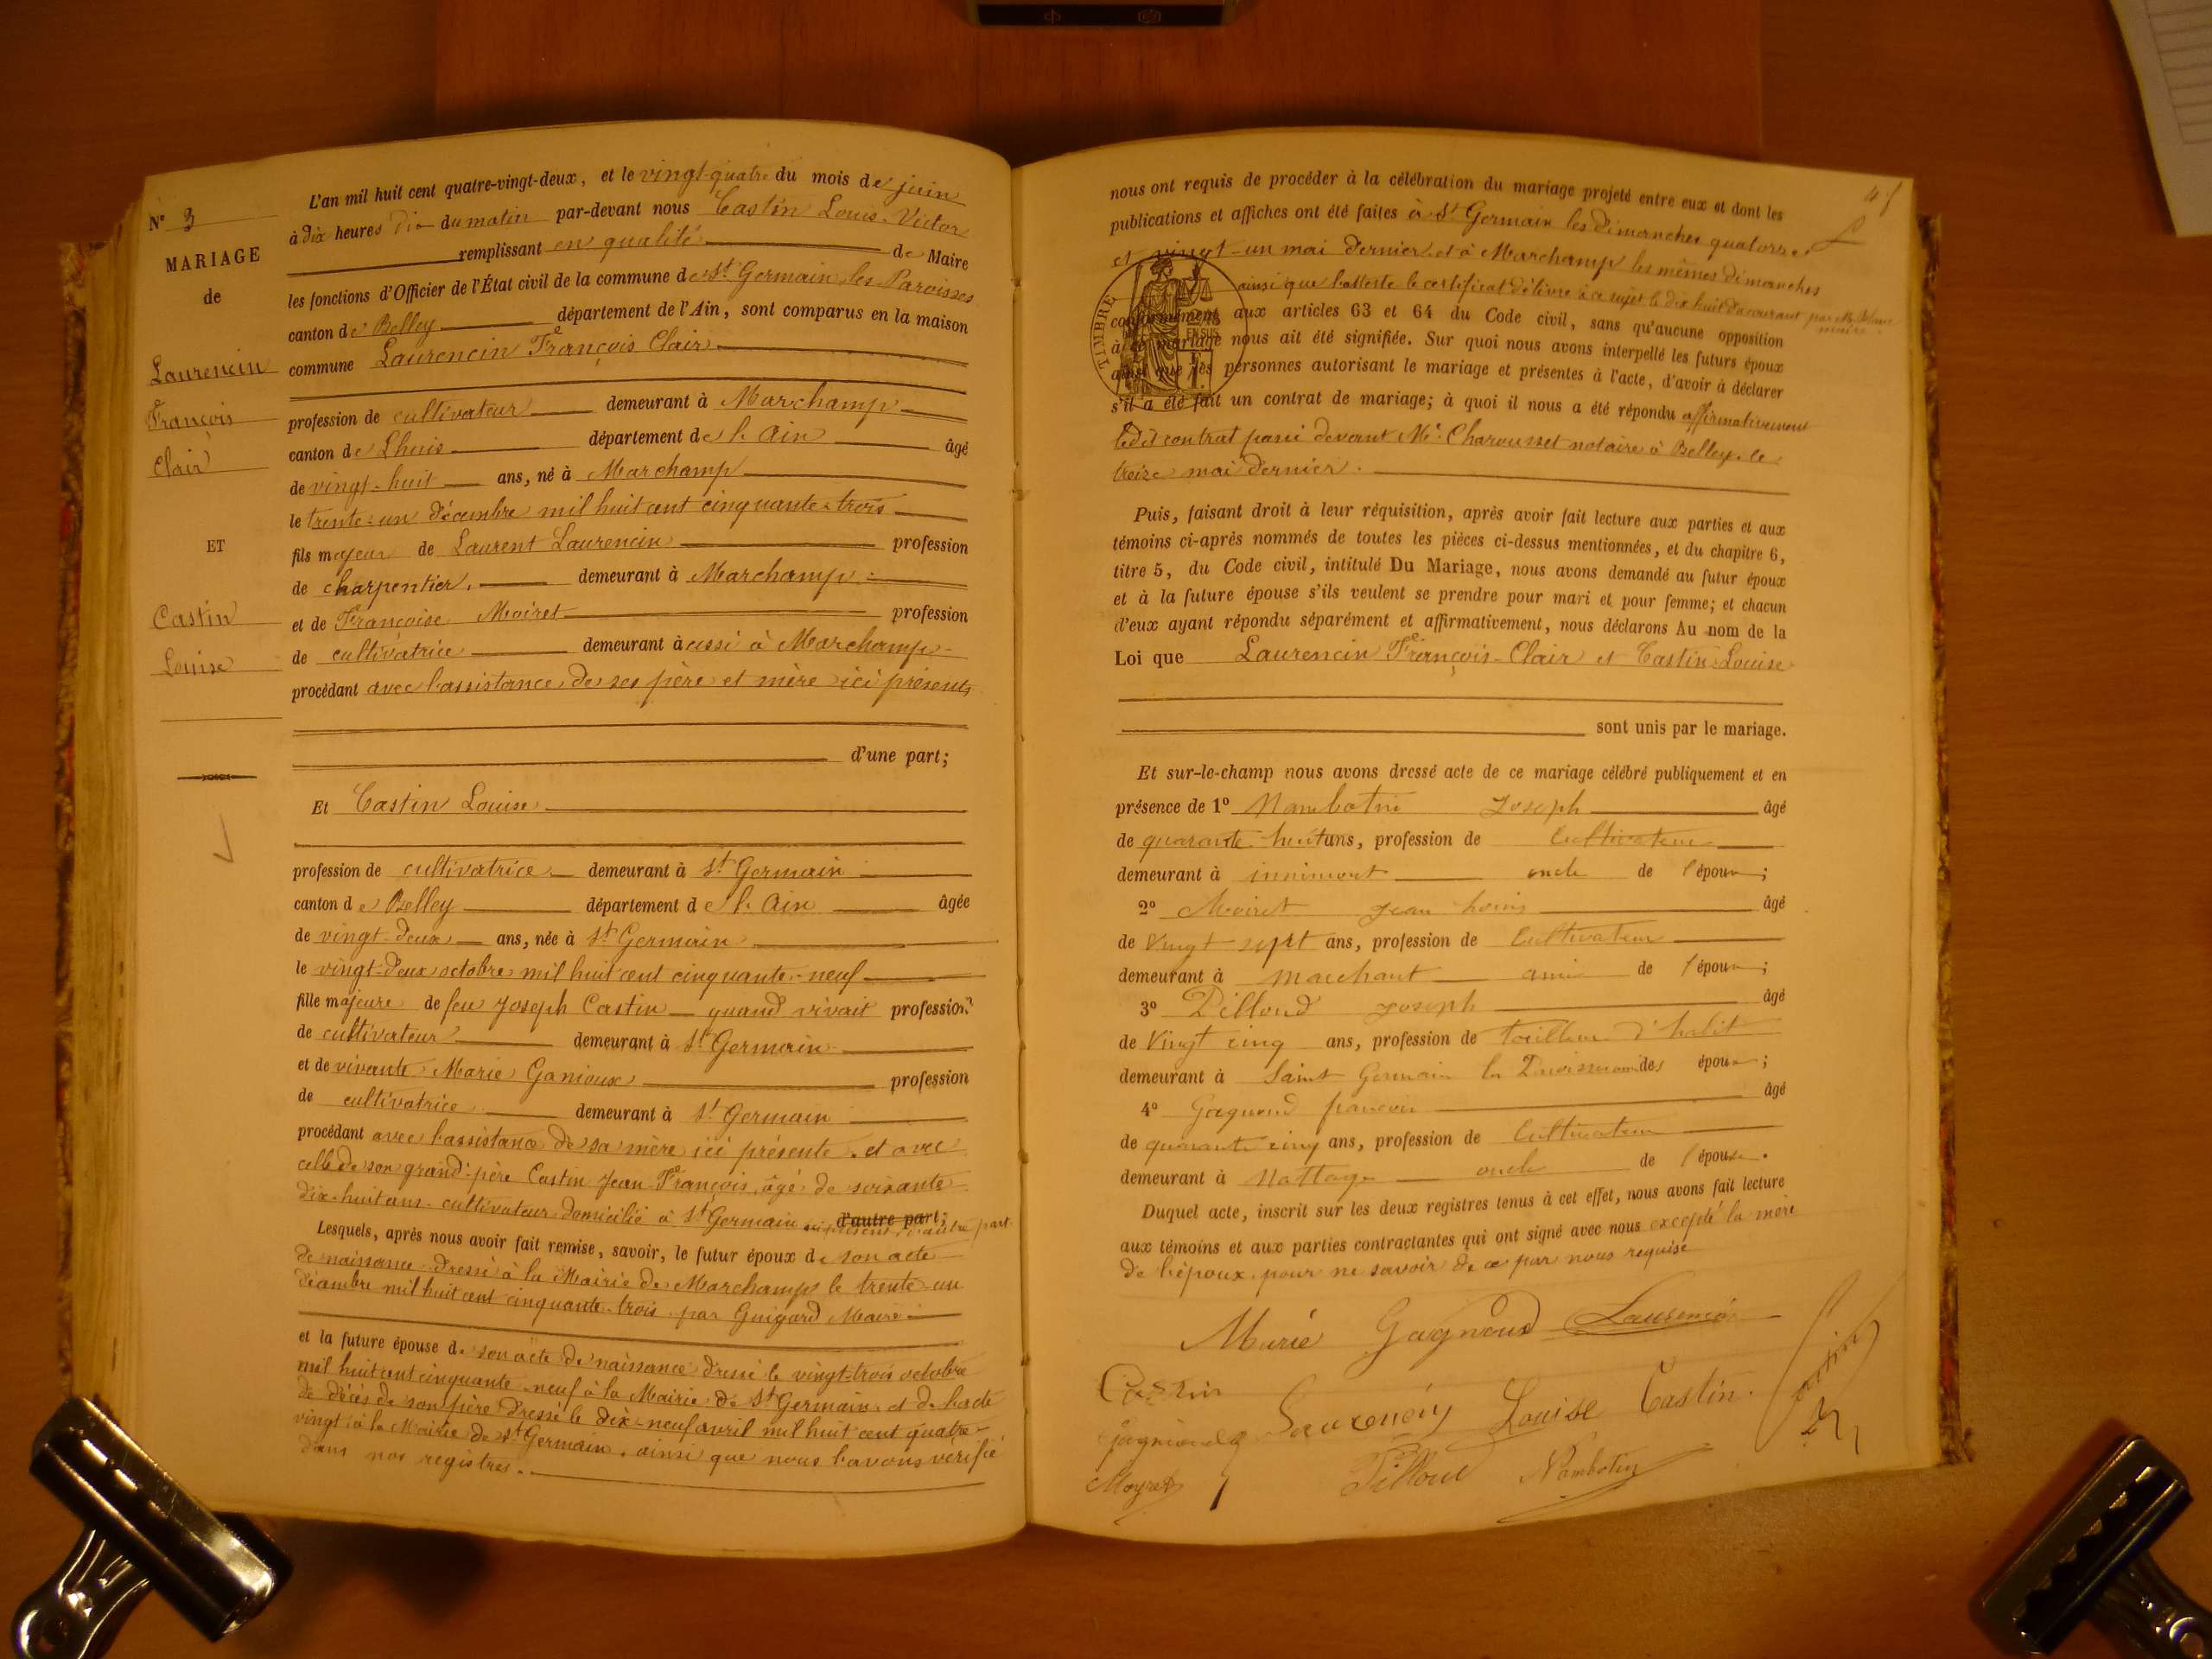 N° 3
MARIAGE
de
Laurencin
François
Clair
ET
Castin
Louise
L'an mil huit cent quatre-vingt-deux, et le vingt-quatre du mois de juin
à dix heures dix du matin par-devant nous Castin Louis-Victor
remplissant en qualité de Maire
les fonctions d'Officier de l'État civil de la commune de St Germain les Paroisses
canton de Belley département de l'Ain, sont comparus en la maison
commune Laurencin François Clair
profession de cultivateur demeurant à Marchamp
canton de Lhuis département de l'Ain âgé
de vingt-huit ans, né à Marchamp
le trente-un décembre mil huit cent cinquante-trois
fils majeur de Laurent Laurencin profession
de charpentier demeurant à Marchamp
et de Françoise Moiret profession
de cultivatrice demeurant à aussi à Marchamp
procédant avec l'assistance de ses père et mère ici présents
d'une part;
Et Castin Louise
profession de cultivatrice demeurant à St Germain
canton de Belley département de l'Ain âgée
de vingt-deux ans, née à St Germain
le vingt-deux octobre mil huit cent cinquante-neuf
fille majeure de feu Joseph Castin quand vivait profession
de cultivateur demeurant à St Germain
et de vivante Marie Ganioux profession
de cultivatrice demeurant à St Germain
procédant avec l'assistance de sa mère ici présente et avec
celle de son grand-père Castin Jean-François âgé de soixante
dix-huit ans cultivateur domicilié à St Germain ici présent d'autre part
d'autre part;
Lesquels, après nous avoir fait remise, savoir, le futur époux de son acte
de naissance dressé à la Mairie de Marchamp le trente-un
décembre mil huit cent cinquante-trois par Guigard Maire
et la future épouse d. son acte de naissance dressé le vingt-trois octobre
mil huit cent cinquante-neuf à la Mairie de St Germain et de l'acte
de décès de son père dressé le dix-neuf avril mil huit cent quatre-
vingt à la Mairie de St Germain, ainsi que nous l'avons vérifié
dans nos registres.
nous ont requis de procéder à la célébration du mariage projeté entre eux et dont les
publications et affiches ont été faites à St Germain les dimanches quatorze
et vingt-un mai dernier et à Marchamp les mêmes dimanches
ainsi que l'atteste le certificat délivré à ce sujet le dix huit du courant par Mr maire
TIMBRE
EN SUS
conformément aux articles 63 et 64 du Code civil, sans qu'aucune opposition
à ce mariage nous ait été signifiée. Sur quoi nous avons interpellé les futurs époux
ainsi que les personnes autorisant le mariage et présentes à l'acte, d'avoir à déclarer
s'il a été fait un contrat de mariage; à quoi il nous a été répondu affirmativement
ledit contrat passé devant Me Charousset notaire à Belley le
treize mai dernier.
Puis, faisant droit à leur réquisition, après avoir fait lecture aux parties et aux
témoins ci-après nommés de toutes les pièces ci-dessus mentionnées, et du chapitre 6,
titre 5, du Code civil, intitulé Du Mariage, nous avons demandé au futur époux
et à la future épouse s'ils veulent se prendre pour mari et pour femme; et chacun
d'eux ayant répondu séparément et affirmativement, nous déclarons Au nom de la
Loi que Laurencin François-Clair et Castin Louise
sont unis par le mariage.
Et sur-le-champ nous avons dressé acte de ce mariage célébré publiquement et en
présence de 1° Nambotin Joseph âgé
de quarante huit ans, profession de Cultivateur
demeurant à innimont oncle de l'époux;
2° Moiret Jean Louis âgé
de Vingt sept ans, profession de Cultivateur
demeurant à marchant ami de l'époux;
3° Pilloud Joseph âgé
de Vingt cinq ans, profession de tailleur d'habit
demeurant à Saint Germain les Paroisses ami des époux;
4° Gagnoud francois âgé
de quarante cinq ans, profession de Cultivateur
demeurant à Nattage oncle de l'épouse.
Duquel acte, inscrit sur les deux registres tenus à cet effet, nous avons fait lecture
aux témoins et aux parties contractantes qui ont signé avec nous excepté la mère
de l'époux pour ne savoir de ce par nous requise
Marie Gagnoud Laurencin
Castin
Laurencin Louise Castin
Castin
Gagnoud
Moyret Pilloud Nambotin